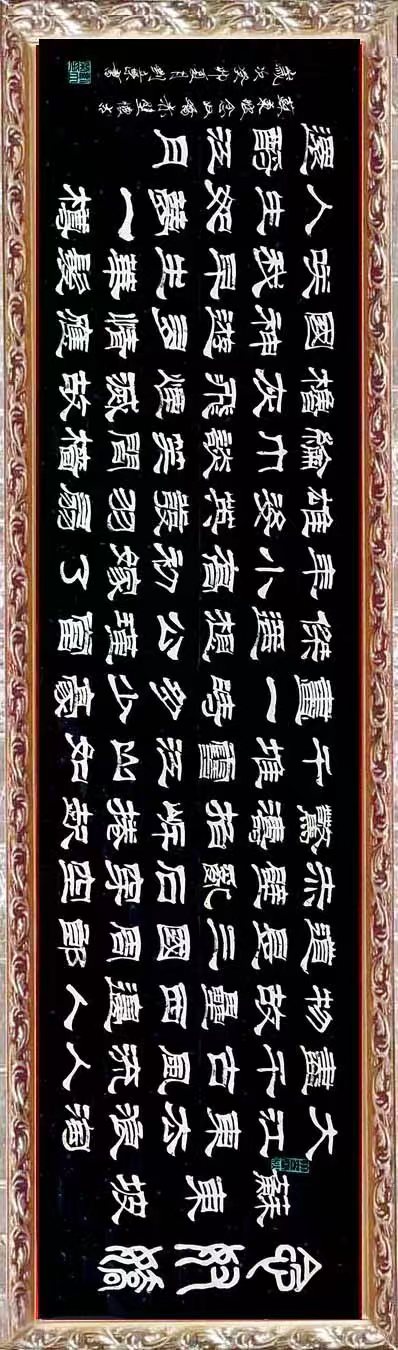 念奴嬌
蘇東坡
大江東去浪淘
盡千古風流人
物故壘西邊人
道是三國周郎
赤壁亂石穿空
驚濤拍岸捲起
千堆雪江山如
畫一時多少豪
傑遙想公瑾當
年小喬初嫁了
雄姿英發羽扇
綸巾談笑間檣
櫓灰飛煙滅故
國神遊多情應
笑我早生華髮
人生如夢一樽
還酹江月
蘇東坡念奴嬌赤壁懷古
歲次癸卯年夏月劉書